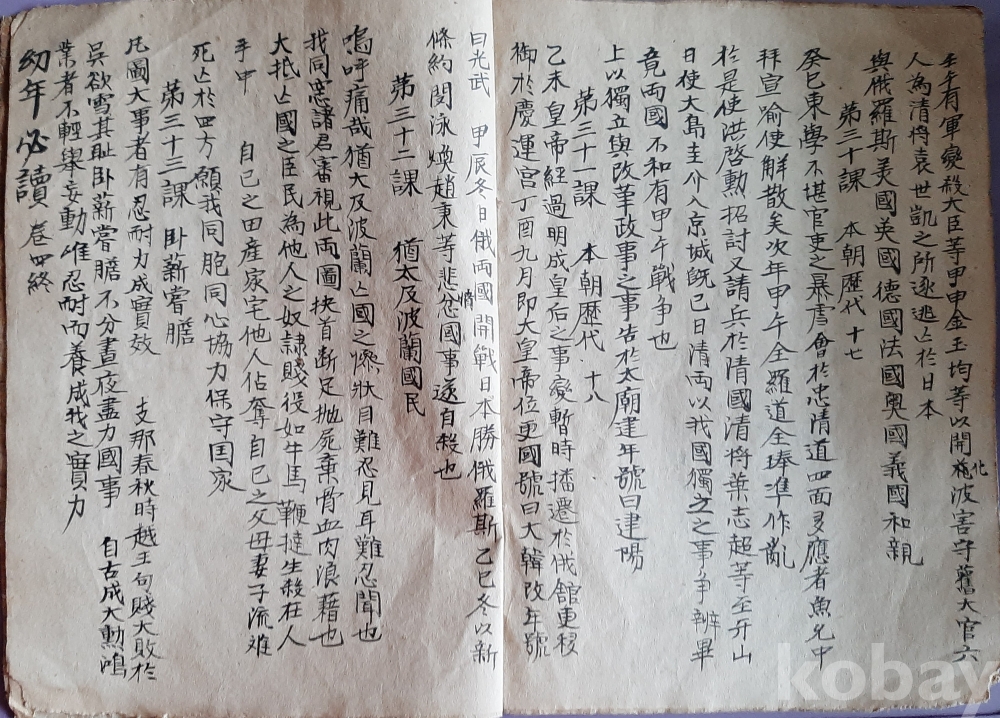 壬午有軍變殺大臣等甲申金玉均等以開化波害守舊大官六
人為清將袁世凱之所逐逃亡於日本
與俄羅斯美國英國德國法國奧國義國和親
第三十課 本朝歷代 十七
癸巳東學不堪官吏之暴虐會於忠清道四面多應者魚允中
拜宣喻使解散矣次年甲午全羅道全琫準作亂
於是使洪啓勳招討又請兵於清國清將葉志超等至牙山
日使大鳥圭介入京城旣已日清両以我國獨立之事争辨畢
竟両國不和有甲午戰争也
上以獨立與改革政事之事告於太廟建年號曰建陽
第三十一課 本朝歷代 十八
乙未皇帝經過明成皇后之事變暫時播遷於俄館更移
御於慶運宮丁酉九月即大皇帝位更國號曰大韓改年號
曰光武 甲辰冬日俄両國開戰日本勝俄羅斯乙巳冬以新
條約閔泳煥趙秉等悲忿惰國事遂自殺也
第三十二課 猶太及波蘭國民
嗚呼痛哉猶大及波蘭亡國之慘狀目難忍見耳難忍聞也
我同志諸君審視此両圖抉首斷足抛屍棄骨血肉浪藉也
大抵亡國之臣民為他人之奴隷賤役如牛馬鞭撻生殺在人
手中 自己之田産家宅他人佔奪自己之父母妻子流难
死亡於四方願我同胞同心協力保守国家
第三十三課 卧薪嘗膽
凡圖大事者有忍耐力成實效 支那春秋時越王句賤大敗於
吳欲雪其耻卧薪嘗膽不分晝夜盡力國事 自古成大勳鴻
業者不輕舉妄動惟忍耐而養成我之實力
幼年必讀 卷四終
kobay